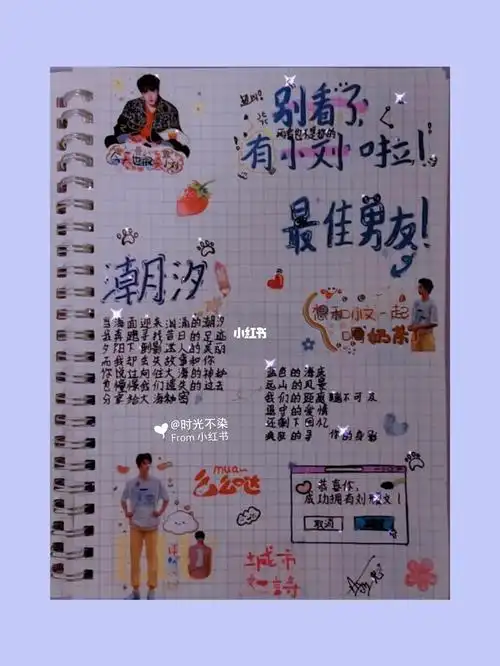 别看了,
有小刘啦!
最佳男友!
潮汐
当海面迎来汹涌的潮汐
我奔跑寻找昔日的足迹
夕阳下倒影迷人的美丽
而我却丢失故事和你
你说过向往大海的神秘
也懂得我们遗失的过去
分享给大海秘密
小红书
想和小文一起
喝奶茶
蓝色的海底
远山的风景
我们的距离 不可及
退守的爱情
还剩下回忆
疯狂的寻 你的身影
@时光不染
From 小红书
mua~
么么哒
恭喜你,
成功拥有刘 文!
取消
城市
之诗